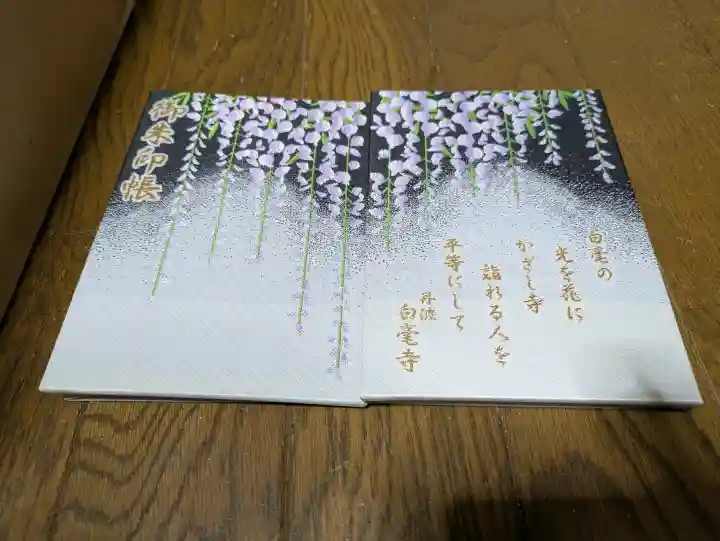 御朱印帳
白毫の
光を花に
かざし寺
詣れる人を
平等にして
丹波
白毫寺